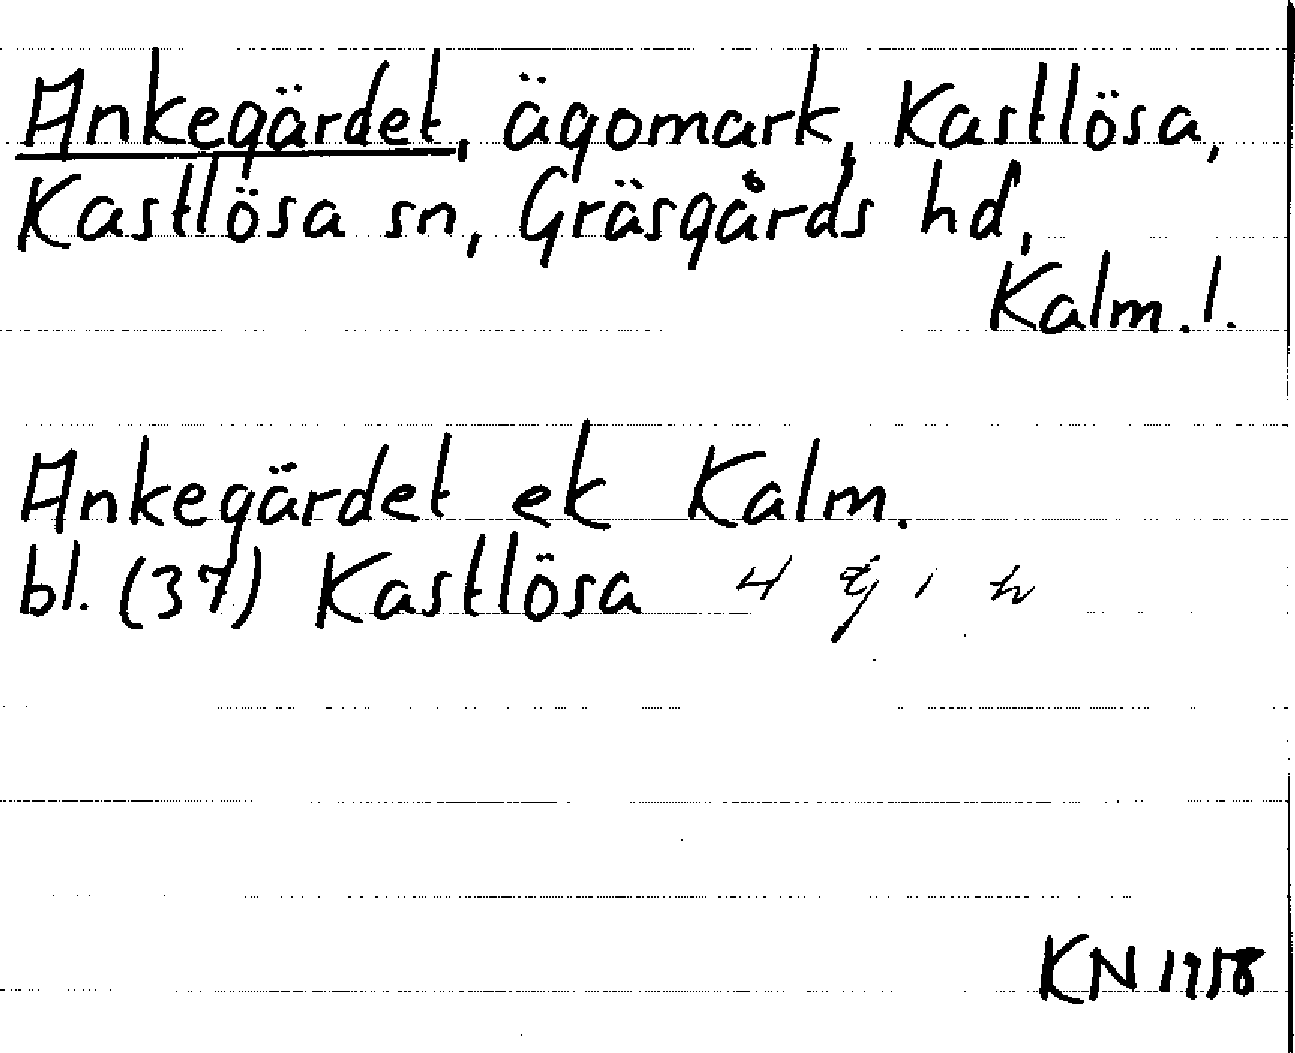 Ankegärdet, ägomark, Kastlösa,
Kastlösa sn, Gräsgårds hd,
Kalm. l.
Ankegärdet ek Kalm.
bl. (37) Kastlösa 4
KN 1958